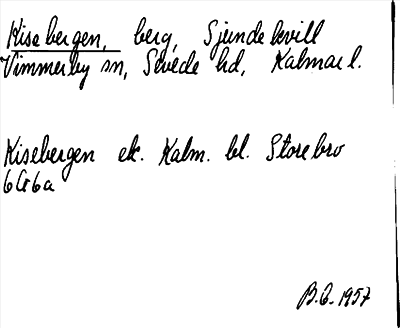 Kisebergen, berg, Sjundekvill
Vimmerby sn, Sevede hd, Kalmar l.
Kisebergen ek. Kalm. bl. Storebro
6G6a
B.G. 1957